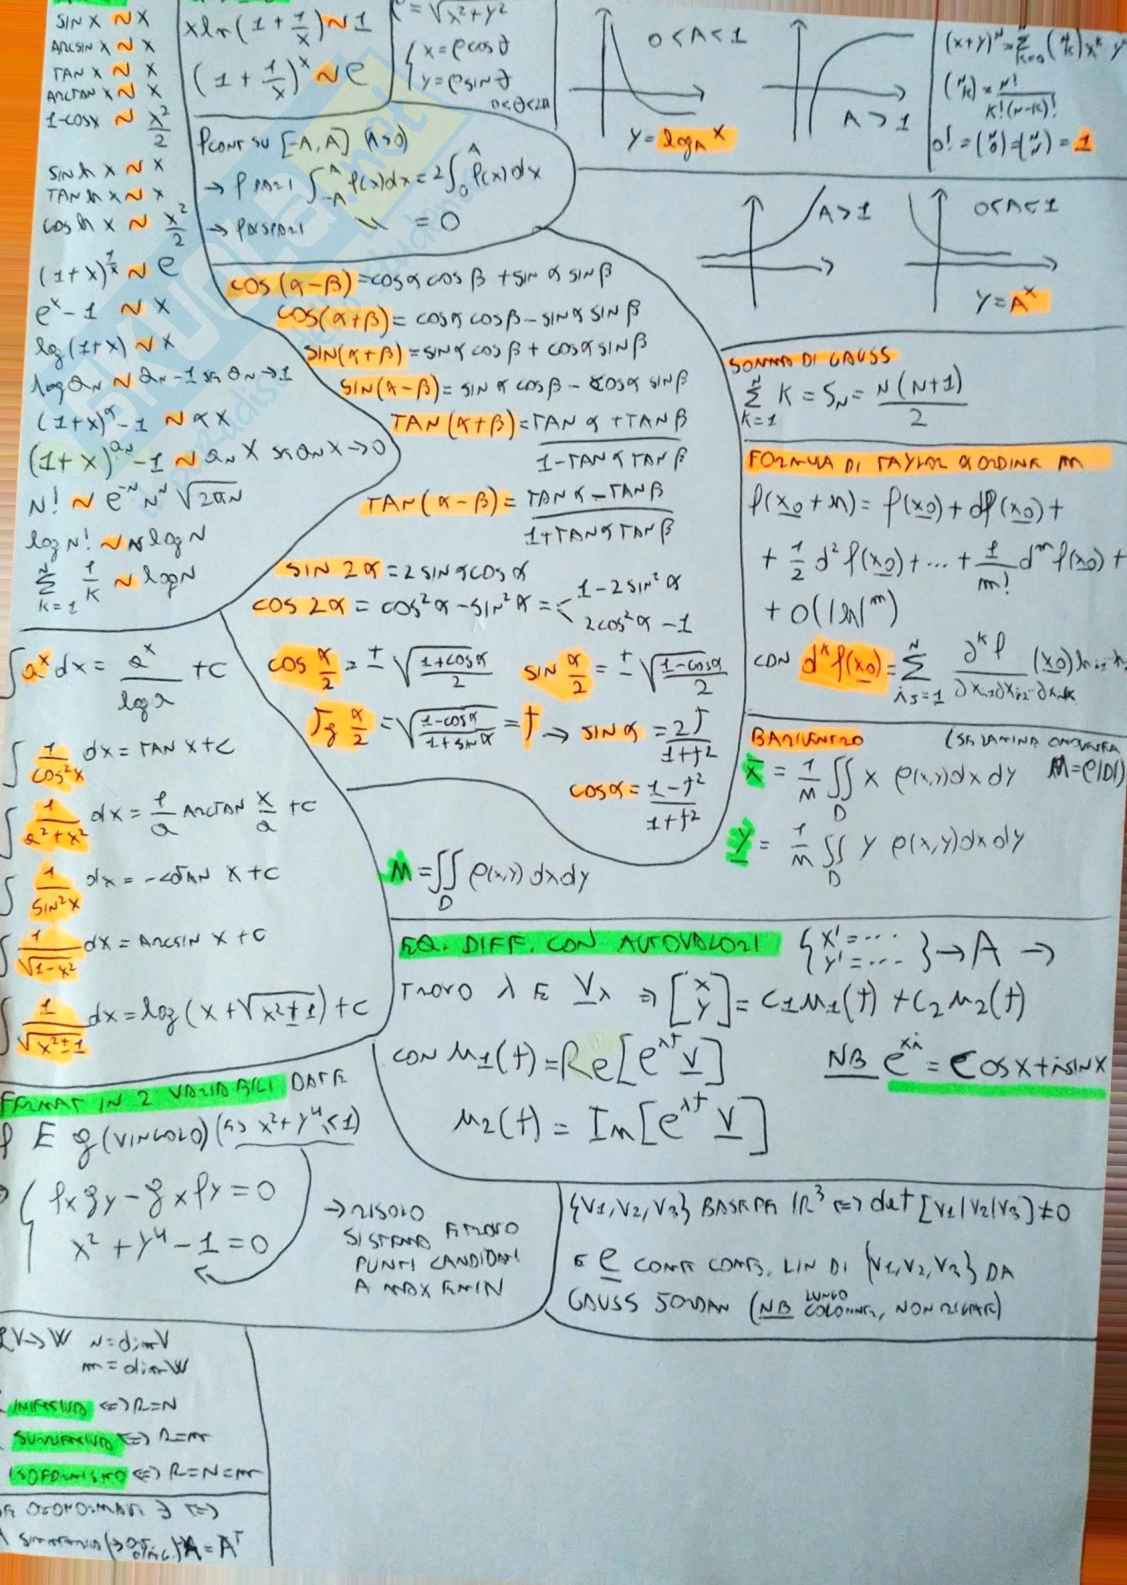 SIN X ~ X
ARCSIN X ~ X
TAN X ~ X
ARCTAN X ~ X
1-COSX ~ X²/2
SINh X ~ X
TANh X ~ X
COSh X ~ X²/2
(1+X)^(1/X) ~ e
e^x - 1 ~ X
lg(1+X) ~ X
log aN ~ aN-1 se aN→1
(1+X)^α - 1 ~ αX
(1+X)^aN - 1 ~ aN X se aN X→0
N! ~ e^-N N^N √(2πN)
log N! ~ N log N
Σ K=1 N 1/K ~ log N
X ln(1+1/X) ~ 1
(1+1/X)^X ~ e
ρ = √(X²+Y²)
{ X = ρ cos θ
Y = ρ sin θ
0<θ<2π
f CONT SU [-A, A] (A>0)
→ f PARI ∫-A A f(x)dx = 2∫0 A f(x)dx
→ f DISPARI " = 0
0<A<1
A>1
Y = logA X
(x+y)^N = Σ K=0 N (N K) x^K y
(N K) = N!/K!(N-K)!
0! = (N 0) = (N N) = 1
A>1
0<A<1
Y = A^X
COS(α-β) = COSα COSβ + SINα SINβ
COS(α+β) = COSα COSβ - SINα SINβ
SIN(α+β) = SINα COSβ + COSα SINβ
SIN(α-β) = SINα COSβ - COSα SINβ
TAN(α+β) = TANα + TANβ / 1-TANα TANβ
TAN(α-β) = TANα - TANβ / 1+TANα TANβ
SIN 2α = 2 SINα COSα
COS 2α = COS²α - SIN²α = < 1-2SIN²α
2COS²α - 1
COS α/2 = ± √(1+COSα / 2) SIN α/2 = ± √(1-COSα / 2)
Tg α/2 = √(1-COSα / 1+SINα) = t → SINα = 2t/1+t²
COSα = 1-t²/1+t²
SOMMA DI GAUSS
Σ K=1 N K = SN = N(N+1)/2
FORMULA DI TAYLOR DI ORDINE m
f(x0+h) = f(x0) + df(x0) +
+ 1/2 d²f(x0) + ... + 1/m! d^m f(x0) +
+ O(|h|^m)
CON d^K f(x0) = Σ is=1 N ∂^K f / ∂xi1 ∂xi2 -∂xik (x0)
BARICENTRO (SE LAMINA OMOGENEA
X = 1/M ∬D X ρ(x,y)dx dy M=ρ|D|)
Y = 1/M ∬D Y ρ(x,y)dx dy
∫ a^x dx = a^x / log a + C
∫ 1/cos²x dx = TAN X + C
∫ 1/a²+x² dx = 1/a ARCTAN X/a + C
∫ 1/SIN²X dx = -COTAN X + C
∫ 1/√(1-x²) dx = ARCSIN X + C
∫ 1/√(x²±1) dx = log(X+√(x²±1)) + C
M = ∬D ρ(x,y) dx dy
EQ. DIFF. CON AUTOVALORI { X'=... Y'=... } → A →
TROVO λ E Vλ ⇒ [X Y] = C1 u1(t) + C2 u2(t)
CON u1(t) = Re[e^λt V] NB e^xi = COSX + iSINX
u2(t) = Im[e^λt V]
FERMAT IN 2 VARIABILI DATE
f E g (VINCOLO) (ES x²+y⁴≤1)
{ fx gy - gx fy = 0
x²+y⁴-1 = 0
→ RISOLVO
SISTEMA E TROVO
PUNTI CANDIDATI
A MAX E MIN
{V1, V2, V3} BASE DI R³ ⇔ det [V1|V2|V3] ≠ 0
E e COME COMB. LIN DI {V1, V2, V3} DA
GAUSS JORDAN (NB LUNGO COLONNE, NON RIGHE)
V→W N = dim V
m = dim W
INIETTIVA ⇔ R=N
SURIETTIVA ⇔ R=m
ISOMORFISMO ⇔ R=N=m
A=A^T